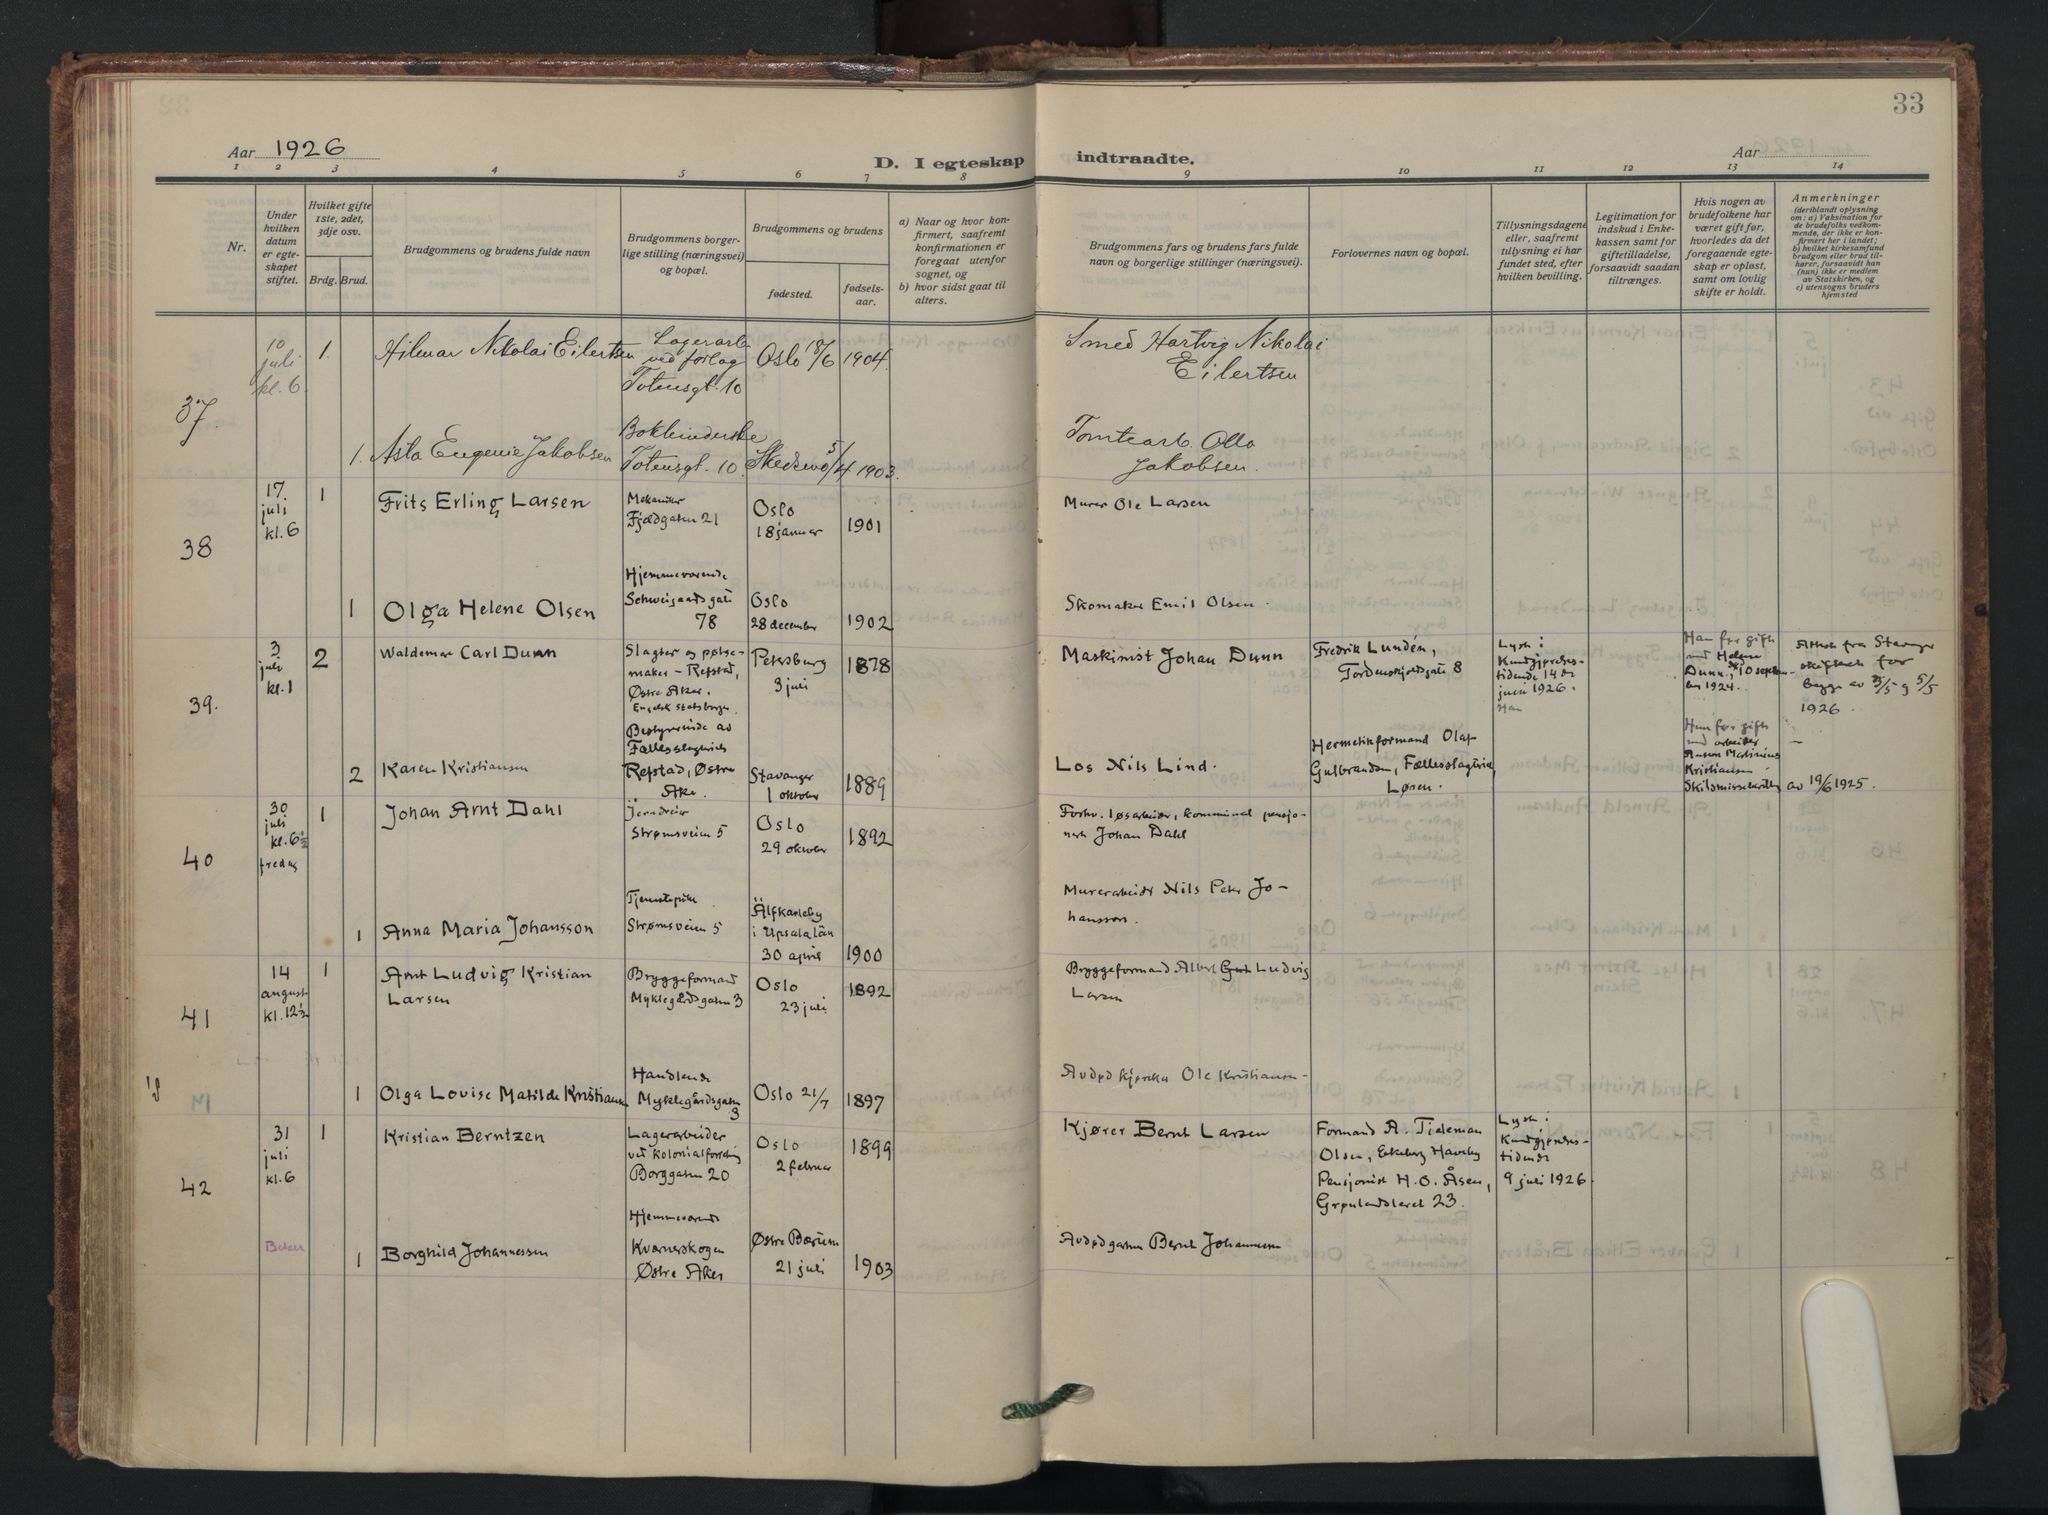 33
Aar 1926
D. I egteskap indtraadte.
Aar
1 2 3 4 5 6 7 8 9 10 11 12 13 14
Nr.
Under hvilken datum er egteskapet stiftet.
Hvilket gifte 1ste, 2det, 3dje osv.
Brdg. Brud.
Brudgommens og brudens fulde navn
Brudgommens borgerlige stilling (næringsvei) og bopæl.
Brudgommens og brudens
fødested.
fødselsaar.
a) Naar og hvor konfirmert, saafremt konfirmationen er foregaaet utenfor sognet, og
b) hvor sidst gaat til alters.
Brudgommens fars og brudens fars fulde navn og borgerlige stillinger (næringsvei).
Forlovernes navn og bopæl.
Tillysningsdagene eller, saafremt tillysning ei har fundet sted, efter hvilken bevilling.
Legitimation for indskud i Enkekassen samt for giftetilladelse, forsaavidt saadan tiltrænges.
Hvis nogen av brudefolkene har været gift før, hvorledes da det foregaaende egteskap er opløst, samt om lovlig skifte er holdt.
Anmerkninger
(deriblandt oplysning om: a) Vaksination for de brudefolks vedkommende, der ikke er konfirmert her i landet; b) hvilket kirkesamfund brudgom eller brud tilhører, forsaavidt han (hun) ikke er medlem av Statskirken, og c) utensogns bruders hjemsted
37
10 juli kl. 6.
1.
Hilmar Nikolai Eilertsen
Lagerarb. ved forlag
Totensgt. 10
Oslo 18/6 1904.
Smed Hartvig Nikolai
Eilertsen
1. Asta Eugenie Jakobsen
Bokbinderske
Totensgt. 10.
Skedsmo 5/4 1903.
Tomtearb. Otto
Jakobsen.
38
17. juli kl. 6
1
Frits Erling Larsen
Mekaniker
Fjeldgaten 21
Oslo
18 januar
1901
Murer Ole Larsen
1 Olga Helene Olsen
Hjemmeværende
Schweigaardsgate
78
Oslo
28 december
1902
Skomaker Emil Olsen.
39.
3 juli kl. 1
2
Waldemar Carl Dunn
Slagter og pølse-
maker - Refstad,
Østre Aker.
Engelsk statsborger
Petersburg
3 juli
1878
Maskinist Johan Dunn
Fredrik Lundén,
Tordenskjoldsgate 8
Lyst i
Kundgjørelses-
tidende 14de
juni 1926.
Han
Han før gift
med Helene
Dunn, 10 septem-
ber 1924.
Attest fra Stavanger
skifteret for
begge av 3/5 og 5/5
1926.
2 Karen Kristiansen
Bestyrerinde av
Fællesslagteriets
Refstad, Østre
Aker
Stavanger
1 oktober
1889
Los Nils Lind.
Hermetikformand Olaf
Gulbrandsen, Fællesslagteriet,
Løren.
Hun før gift
med arbeider
Anton Martinius
Kristiansen
Skilsmissebevilling av 19/6 1925.
40
30 juli kl. 6 1/2 fredag
1
Johan Arnt Dahl
Jerndreier
Strømsveien 5
Oslo
29 oktober
1892
Forhv. løsarbeider, kommunal pensjo-
nert Johan Dahl
1 Anna Maria Johansson
Tjenestepike
Strømsveien 5
Älfkarleby
i Upsala län
30 april
1900
Murerarbeider Nils Peter Jo-
hansson.
41
14 august kl. 12 1/2
1
Arnt Ludvig Kristian
Larsen
Bryggeformand
Myklegårdsgaten 3
Oslo
23 juli
1892
Bryggeformand Albert Ludvig
Larsen
1 Olga Lovise Matilde Kristiansen
Handlende
Myklegårdsgaten
3
Oslo 21/7 1897
Avdød kjørekar Ole Kristiansen
42
31 juli kl. 6
1
Kristian Berntzen
Lagerarbeider
ved kolonialforretning
Borggaten 20
Oslo
2 februar
1899
Kjører Bernt Larsen
Formand A. Tideman
Olsen, Ekeberg Haveby
Pensjonist H. O. Åsen,
Grønlandsleret 23.
Lyst i
Kundgjørelses-
tidende
9 juli 1926.
1 Borghild Johannessen
Hjemmeværende
Kværnerskogen
Østre Aker
Østre Bærum
21 juli
1903
Avdød gartner Bernt Johannessen